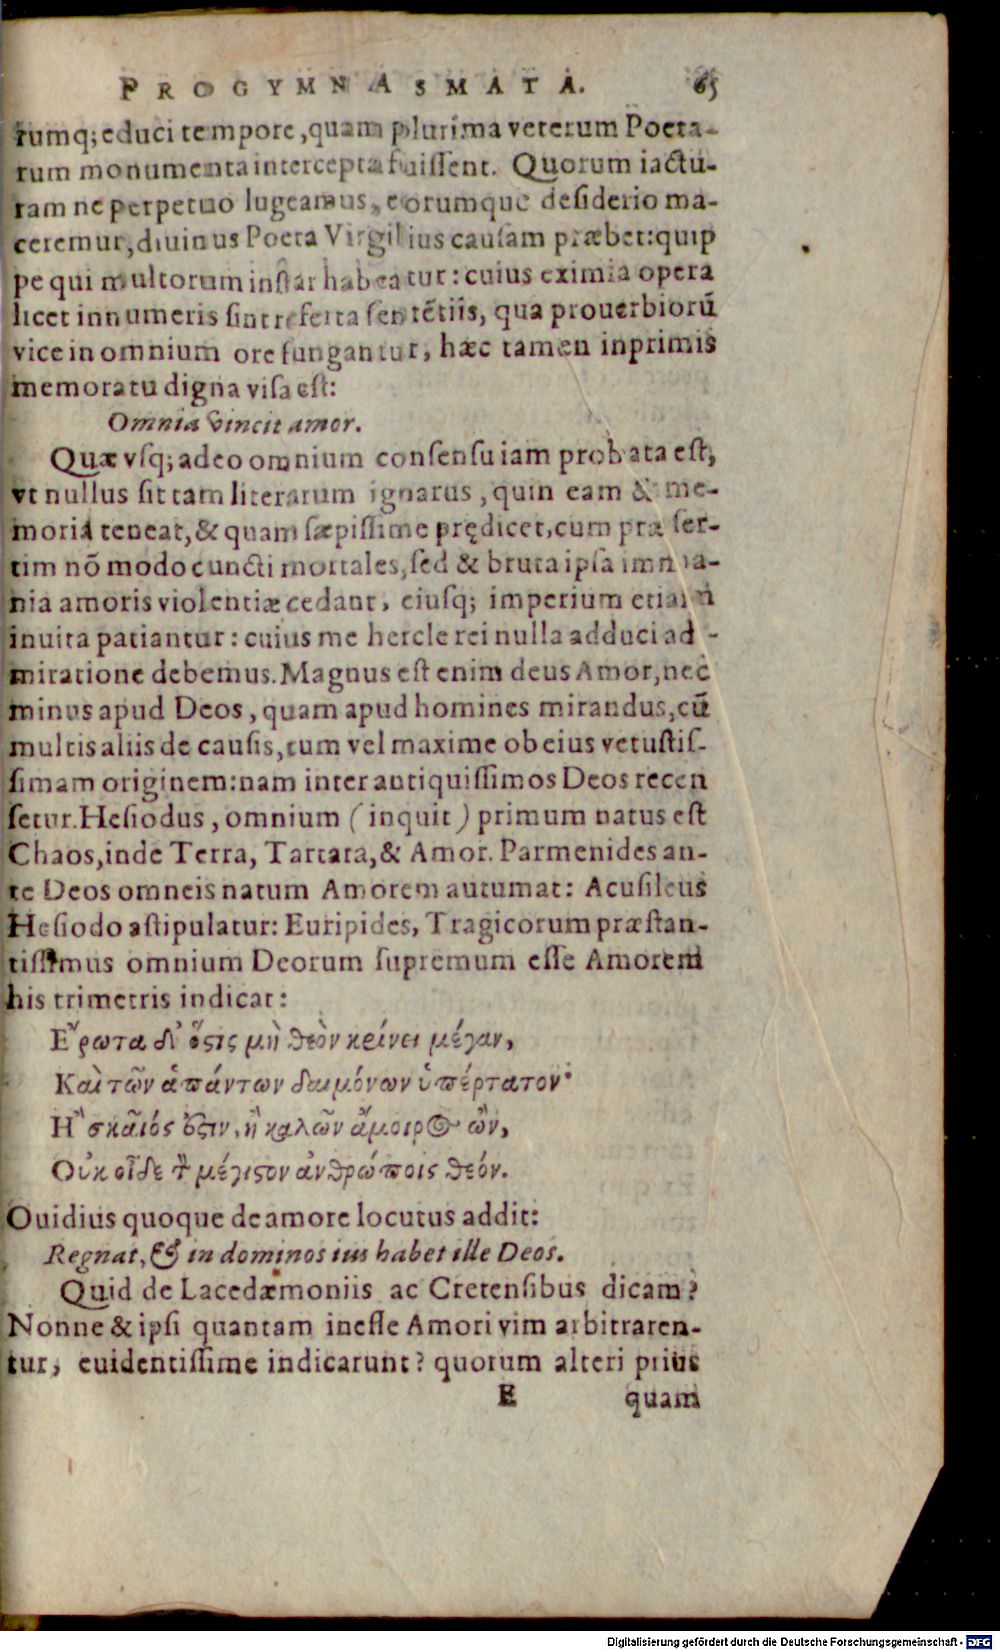 PROGYMNASMATA. 65
rumq; educi tempore, quam plurima veterum Poeta-
rum monumenta intercepta fuissent. Quorum iactu-
ram ne perpetuo lugeamus, eorumque desiderio ma-
ceremur, diuinus Poeta Virgilius causam præbet: quip
pe qui multorum instar habeatur: cuius eximia opera
licet innumeris sint referta sentētiis, qua prouerbiorū
vice in omnium ore fungantur, hæc tamen inprimis
memoratu digna visa est:
Omnia vincit amor.
Quæ vsq; adeo omnium consensu iam probata est,
vt nullus sit tam literarum ignarus, quin eam & me-
moria teneat, & quam sæpissime prędicet, cum præser-
tim nō modo cuncti mortales, sed & bruta ipsa imma-
nia amoris violentiæ cedant, eiusq; imperium etiam
inuita patiantur: cuius me hercle rei nulla adduci ad-
miratione debemus. Magnus est enim deus Amor, nec
minus apud Deos, quam apud homines mirandus, cū
multis aliis de causis, tum vel maxime ob eius vetustis-
simam originem: nam inter antiquissimos Deos recen
setur. Hesiodus, omnium (inquit) primum natus est
Chaos, inde Terra, Tartara, & Amor. Parmenides an-
te Deos omneis natum Amorem autumat: Acusileus
Hesiodo astipulatur: Euripides, Tragicorum præstan-
tissimus omnium Deorum supremum esse Amorem
his trimetris indicat:
Ἔρωτα δ' ὅςις μὴ θεὸν κρίνει μέγαν,
Καὶ τῶν ἁπάντων δαιμόνων ὑπέρτατον·
Ἢ σκαῖός ὅςιν, ἢ καλῶν ἄμοιρος ὢν,
Οὐκ οἶδε τὸν μέγιςον ἀνθρώποις θεόν.
Ouidius quoque de amore locutus addit:
Regnat, & in dominos ius habet ille Deos.
Quid de Lacedæmoniis ac Cretensibus dicam?
Nonne & ipsi quantam inesse Amori vim arbitraren-
tur, euidentissime indicarunt? quorum alteri prius
E quam
Digitalisierung gefördert durch die Deutsche Forschungsgemeinschaft - DFG